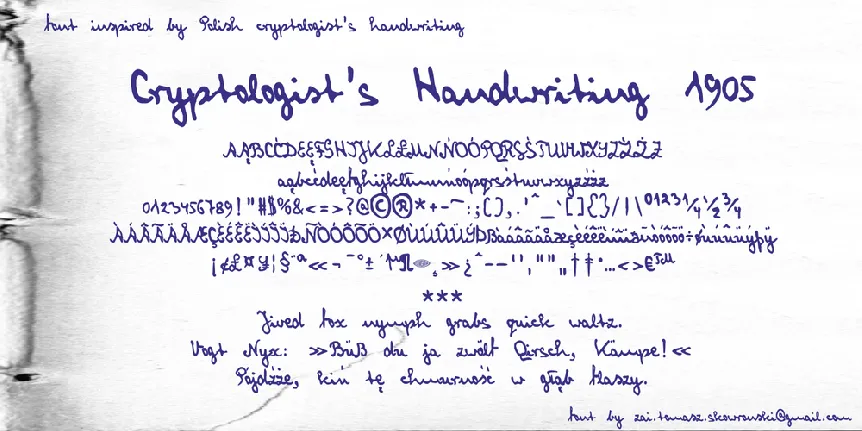 font inspired by Polish cryptologist's handwriting
Cryptologist's Handwriting 1905
AĄBCĆDEĘFGHIJKLŁMNŃOÓPQRSŚTUVWXYZŹŻ
aąbcćdeęfghijklłmnńoópqrsśtuvwxyzźż
0123456789!"#$%&<=>?@©®*+-~:;(),.'^_`[]{}/|\0123¼½¾
¡¢£¤¥¦§¨ª«¬¯°±´µ¶¸»¿ˆ–—'',"""„†‡•…<>€™
***
Jived fox nymph grabs quick waltz.
Vogt Nyx: »Büß du ja zwölf Qirsch, Kämpe!«
Pójdźże, kiń tę chmurność w głąb flaszy.
font by zai.tomasz.skowronski@gmail.com